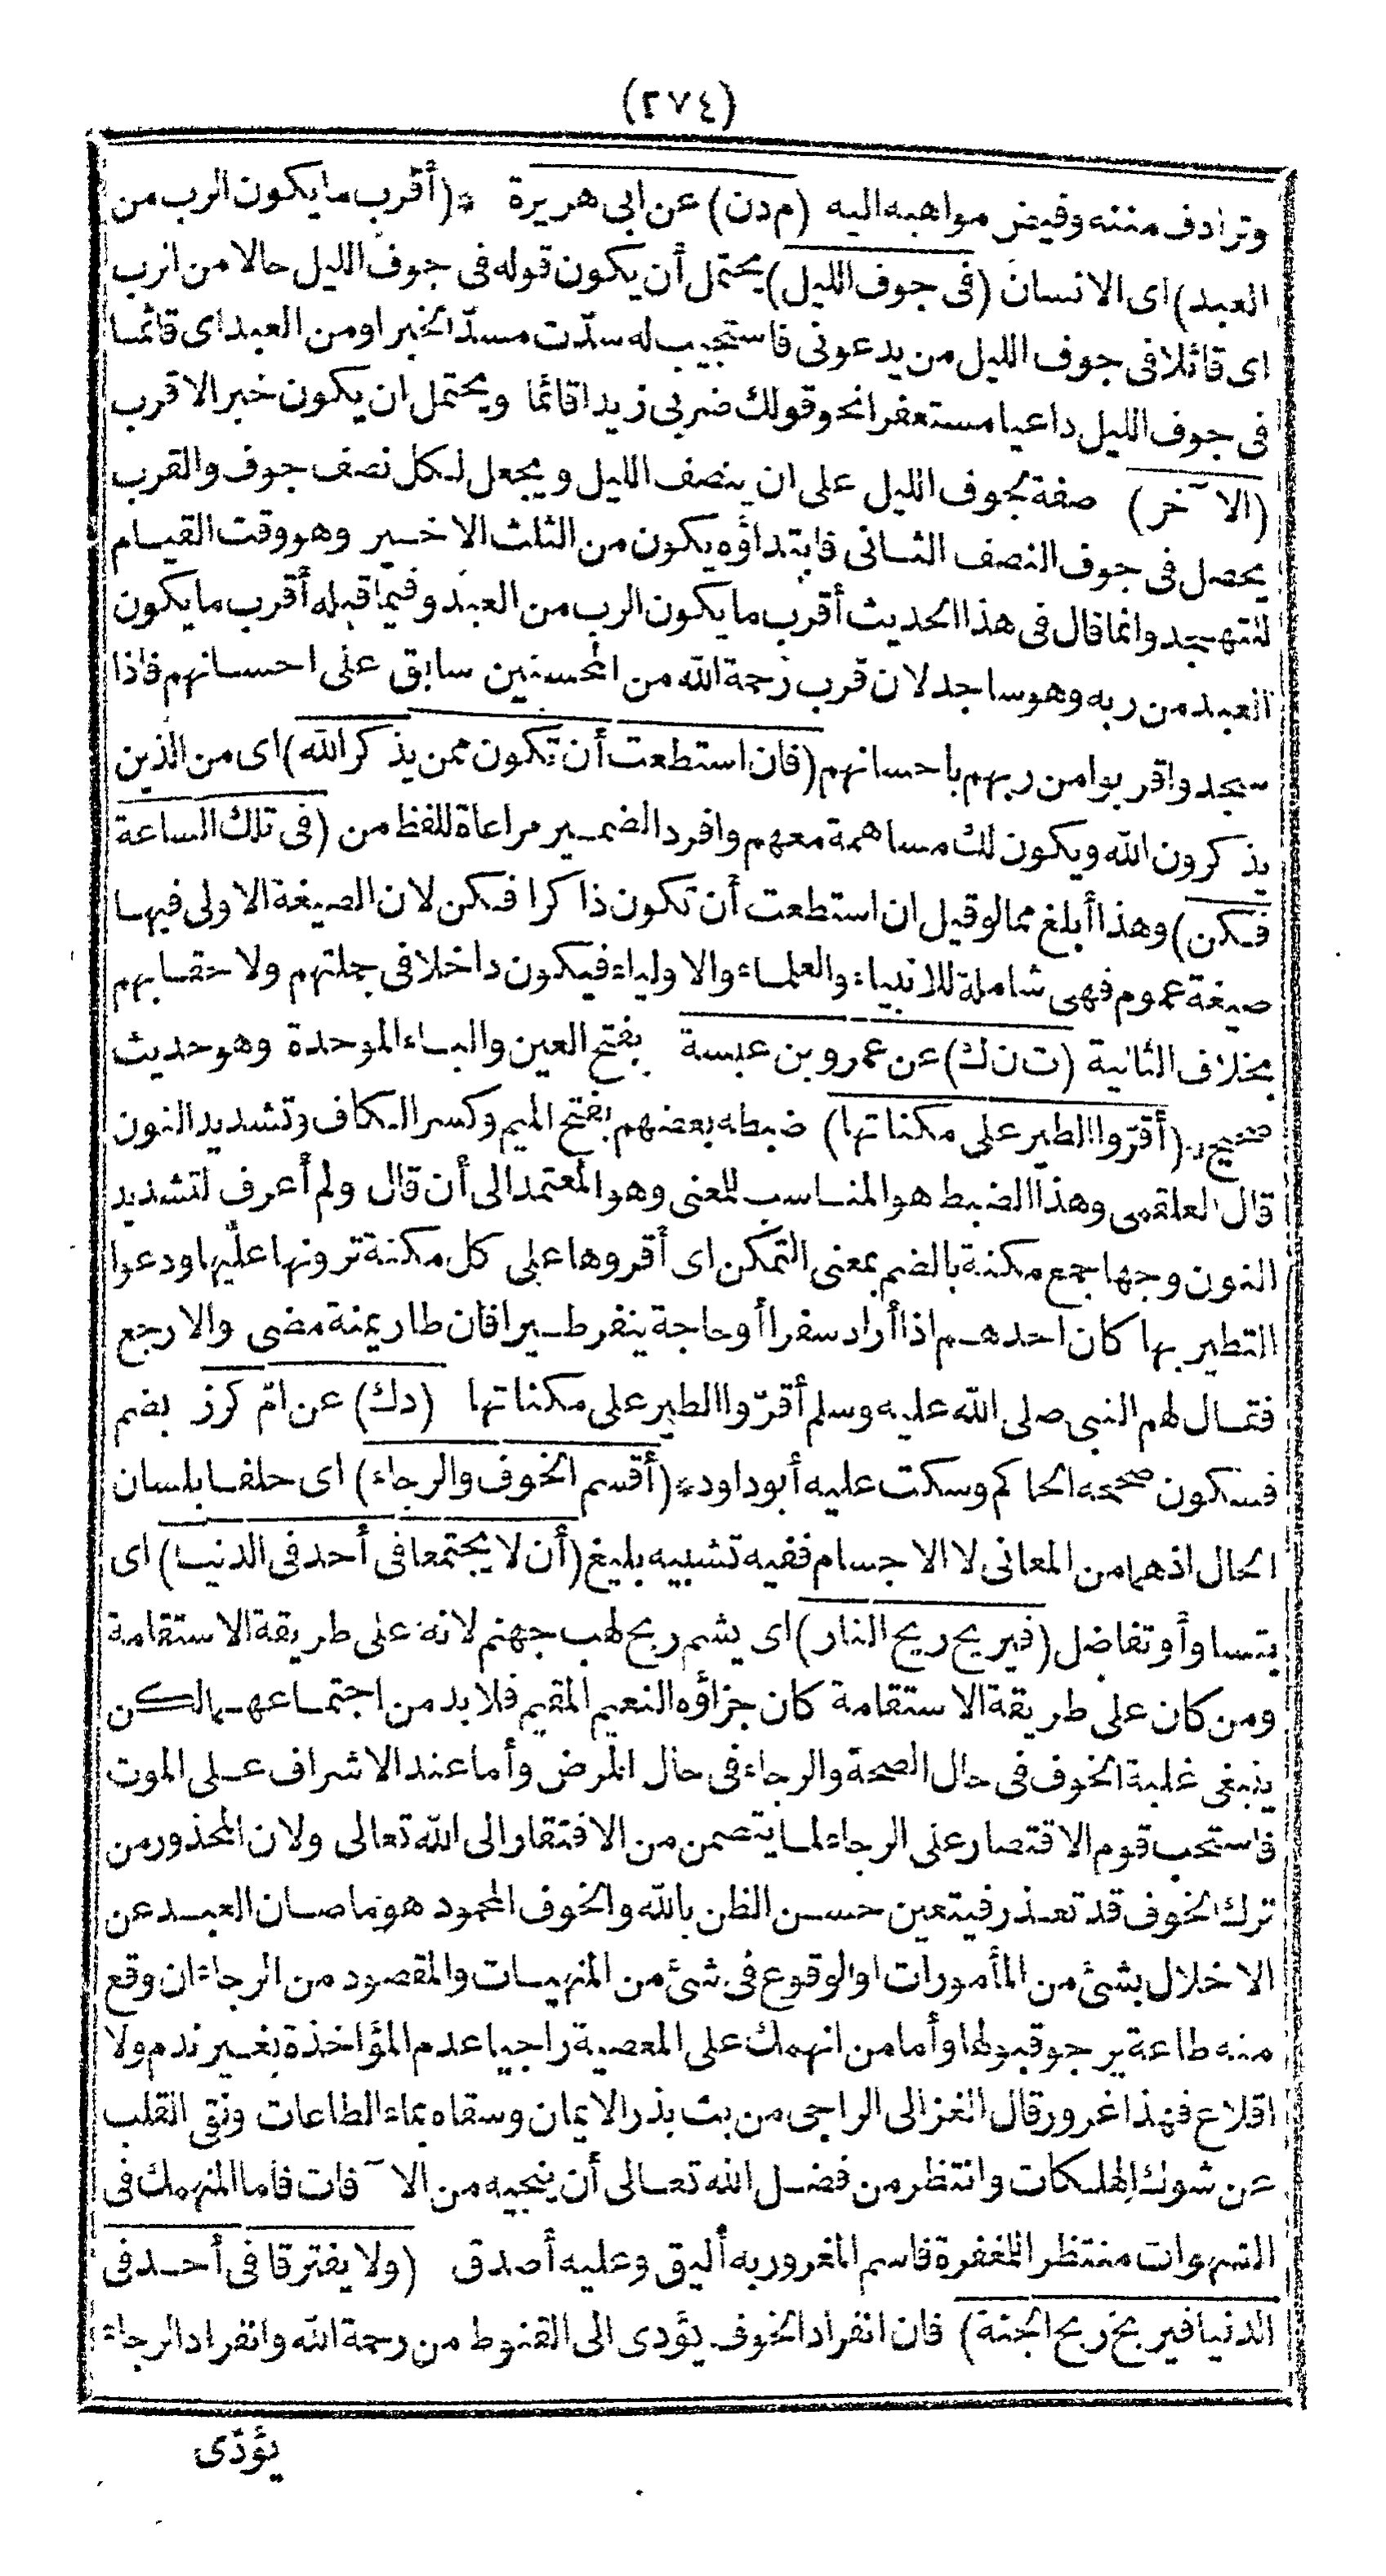 (٢٧٤)
وترادف مننه وفيض مواهبه اليه (م دن) عن ابى هريرة * (أقرب ما يكون الرب من
العبد) اى الانسان (فى جوف الليل) يحتمل أن يكون قوله فى جوف الليل حالا من الرب
اى قائلا فى جوف الليل من يدعونى فاستجيب له سدّت مسدّ الخبر او من العبد اى قائما
فى جوف الليل داعيا مستغفرا نحو قولك ضربى زيدا قائما ويحتمل ان يكون خبر الاقرب
(الآخر) صفة لجوف الليل على ان ينصف الليل ويجعل لكل نصف جوف والقرب
يحصل فى جوف النصف الثانى فابتداؤه يكون من الثلث الاخير وهو وقت القيام
للتهجد وانما قال فى هذا الحديث أقرب ما يكون الرب من العبد وفيما قبله أقرب ما يكون
العبد من ربه وهو ساجد لان قرب رحمة الله من المحسنين سابق على احسانهم فاذا
سجدوا قربوا من ربهم باحسانهم (فان استطعت أن تكون ممن يذكر الله) اى من الذين
يذكرون الله ويكون لك مساهمة معهم وافرد الضمير مراعاة للفظ من (فى تلك الساعة
فكن) وهذا أبلغ مما لو قيل ان استطعت أن تكون ذاكرا فكن لان الصيغة الاولى فيها
صيغة عموم فهى شاملة للانبياء والعلماء والاولياء فيكون داخلا فى جملتهم ولاحقا بهم
بخلاف الثانية (ت ن ك) عن عمرو بن عبسة بفتح العين والباء الموحدة وهو حديث
صحيح * (أقرّوا الطير على مكناتها) ضبطه بعضهم بفتح الميم وكسر الكاف وتشديد النون
قال العلقمى وهذا الضبط هو المناسب للمعنى وهو المعتمد الى أن قال ولم أعرف لتشديد
النون وجها جمع مكنة بالضم بمعنى التمكن اى أقروها على كل مكنة ترونها عليها ودعوا
التطير بها كان احدهم اذا أراد سفرا أو حاجة ينفر طيرا فان طار يمنة مضى والا رجع
فقال لهم النبى صلى الله عليه وسلم أقرّوا الطير على مكناتها (دك) عن امّ كرز بضم
فسكون صححه الحاكم وسكت عليه أبو داود * (أقسم الخوف والرجاء) اى حلفا بلسان
الحال اذ هما من المعانى لا الاجسام ففيه تشبيه بليغ (أن لا يجتمعا فى أحد فى الدنيا) اى
بتساو أو تفاضل (فيريح ريح النار) اى يشم ريح لهب جهنم لانه على طريقة الاستقامة
ومن كان على طريقة الاستقامة كان جزاؤه النعيم المقيم فلا بد من اجتماعهما لكن
ينبغى غلبة الخوف فى حال الصحة والرجاء فى حال المرض وأما عند الاشراف على الموت
فاستحب قوم الاقتصار على الرجاء لما يتضمن من الافتقار الى الله تعالى ولان المحذور من
ترك الخوف قد تعذر فيتعين حسن الظن بالله والخوف المحمود هو ما صان العبد عن
الاخلال بشئ من المأمورات او الوقوع فى شئ من المنهيات والمقصود من الرجاء ان وقع
منه طاعة يرجو قبولها وأما من انهمك على المعصية راجيا عدم المؤاخذة بغير ندم ولا
اقلاع فهذا غرور قال الغزالى الراجى من بث بذر الايمان وسقاه بماء الطاعات ونقى القلب
عن شوك الهلكات وانتظر من فضل الله تعالى أن ينجيه من الآفات فاما المنهمك فى
الشهوات منتظر المغفرة فاسم المغرور به أليق وعليه أصدق (ولا يفترقا فى أحد فى
الدنيا فيريح ريح الجنة) فان انفراد الخوف يؤدى الى القنوط من رحمة الله وانفراد الرجاء
يؤدّى